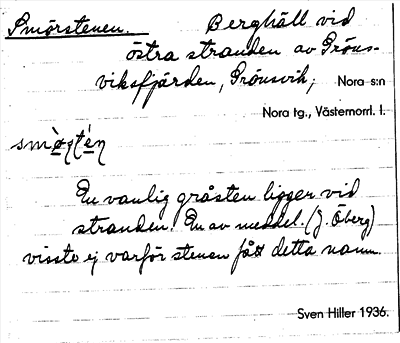 Smörstenen. Berghäll vid
östra stranden av Gröns-
viksfjärden, Grönsvik, Nora s:n
Nora tg., Västernorrl. l.
En vanlig gråsten ligger vid
stranden. En av meddel. (J. Öberg)
visste ej varför stenen fått detta namn.
Sven Hiller 1936.